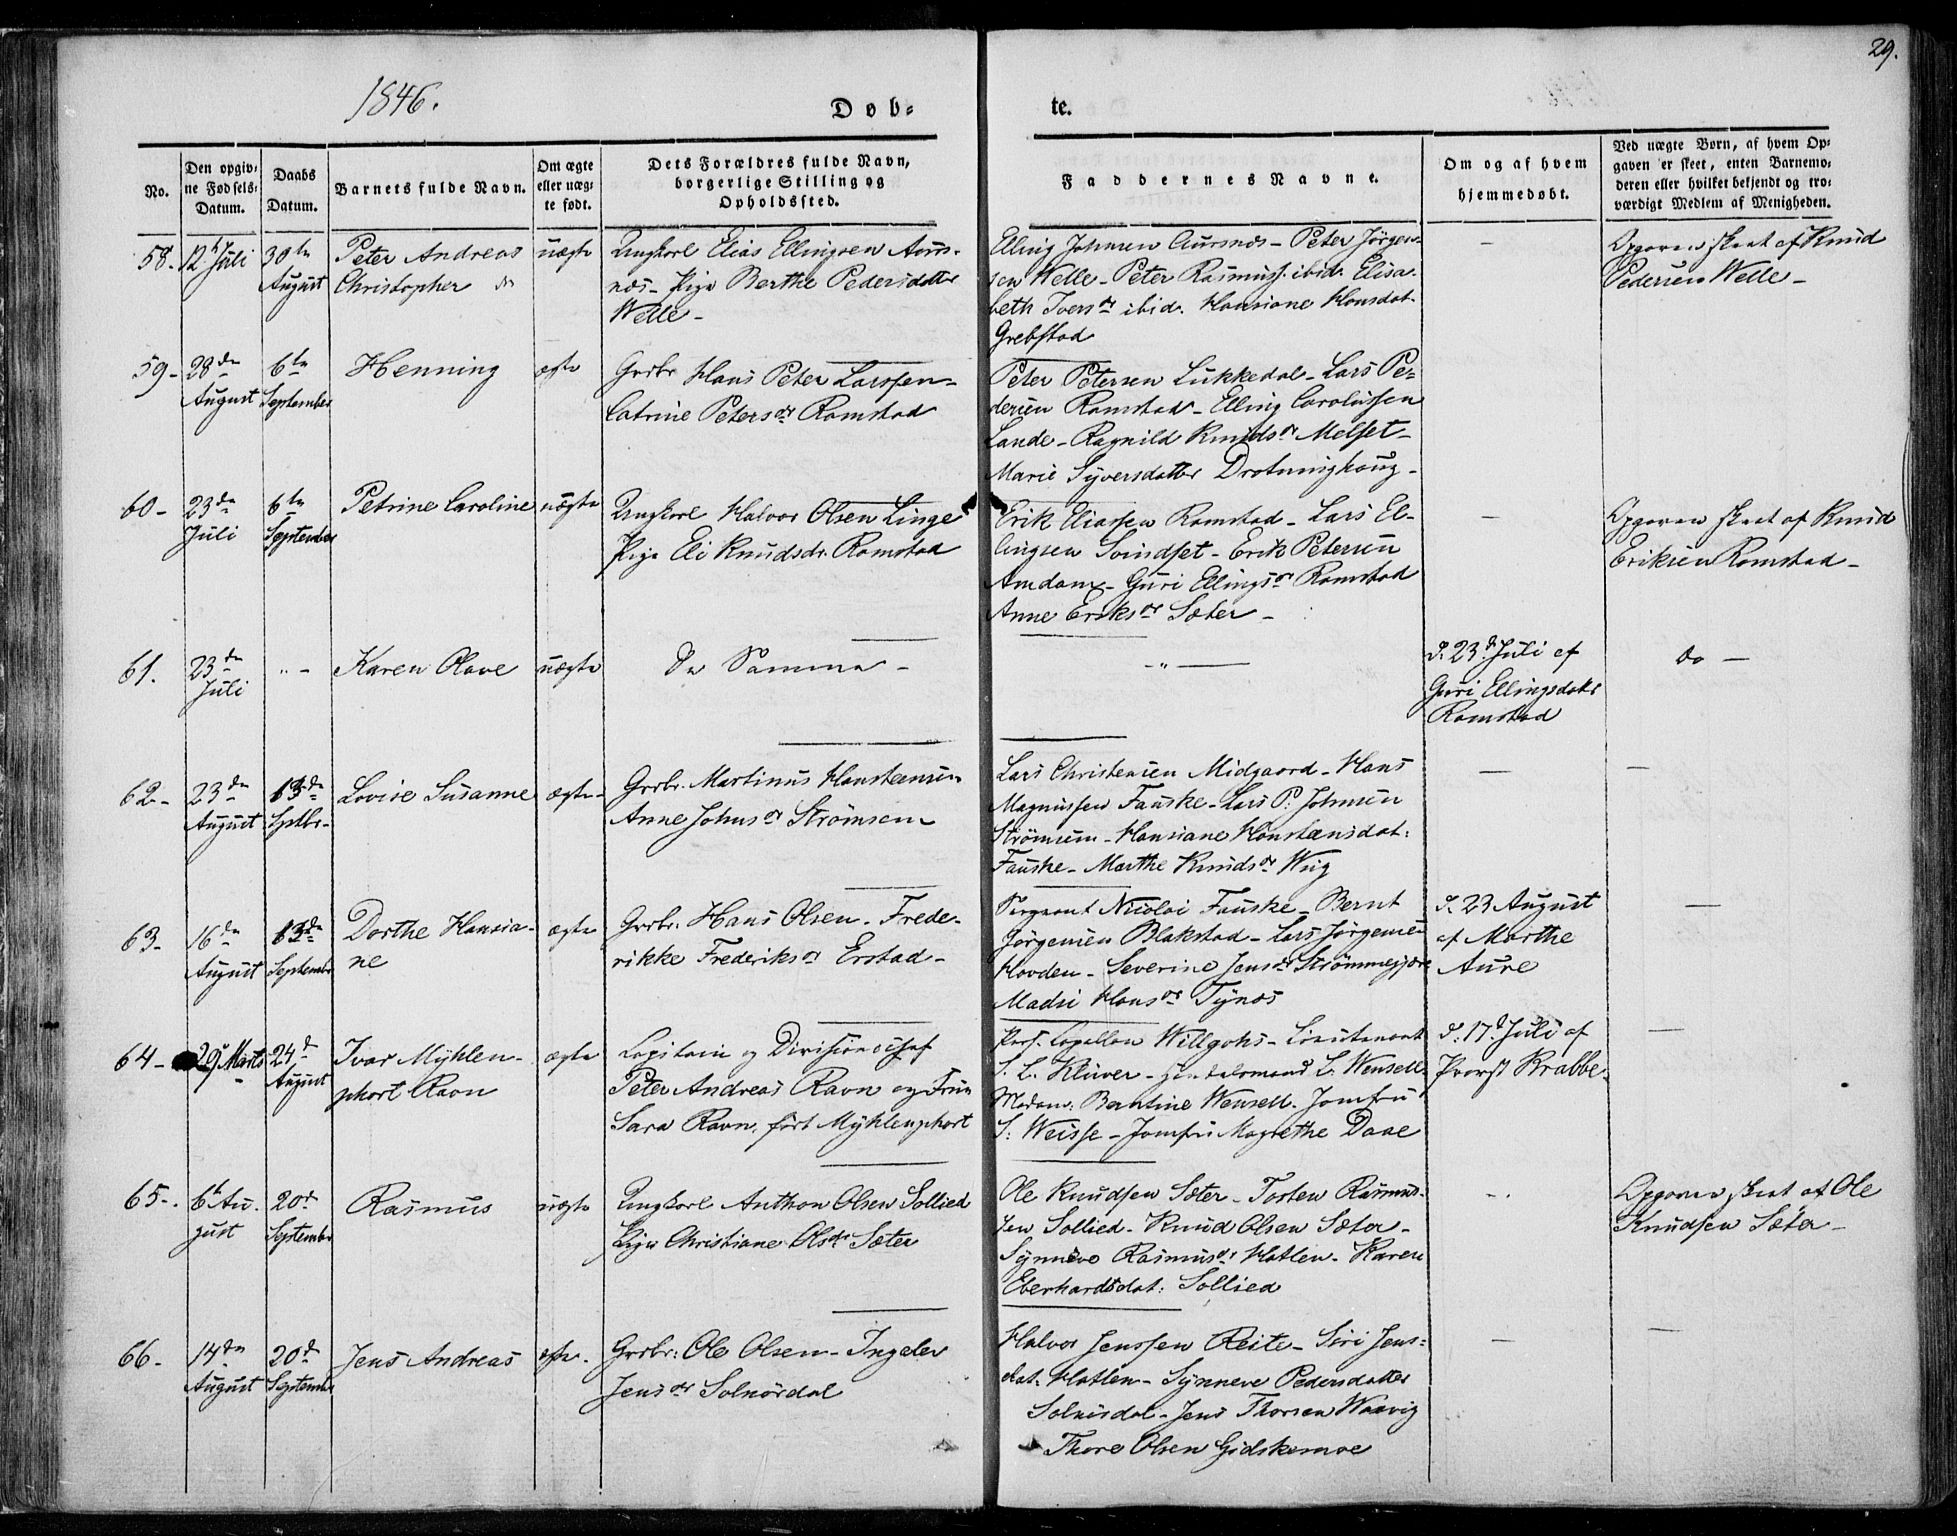 29.
1846.
Døb-
te.
No.
Den opgiv-
ne Fødsels-
Datum.
Daabs
Datum.
Barnets fulde Navn.
Om ægte
eller uæg-
te født.
Dets Forældres fulde Navn,
borgerlige Stilling og
Opholdssted.
Faddernes Navne.
Om og af hvem
hjemmedøbt.
Ved uægte Børn, af hvem Op-
gaven er skeet, enten Barnemo-
deren eller hvilket bekjendt og tro-
værdigt Medlem af Menigheden.
58.
12te Juli
30te
August
Peter Andreas
Christopher
uægte
Ungkarl Elias Ellingsen Aurs-
næs - Pige Berthe Pedersdatter
Welle -
Elling Johnsen Aursnæs - Peter Jörgen-
sen Welle - Peter Rasmuss. ibid. Elisa-
beth Iversdr ibid. Hansiane Hansdat.
Grebstad
-
Opgaven skeet af Knud
Pedersen Welle -
59-
28de
August
6te
September
Henning
ægte
Grbr Hans Peter Larssen -
Catrine Petersdr Ramstad
Peter Petersen Lukkedal - Lars Pe-
dersen Ramstad - Elling Carolussen
Lande - Ragnild Knudsdr Melset -
Marie Syversdatter Drotninghaug -
60-
23de
Juli
6te
September
Petrine Caroline
uægte
Ungkarl Halvor Olsen Linge
Pige Eli Knudsdr. Ramstad
Erik Eliassen Ramstad - Lars El-
lingsen Svindset - Erik Petersen
Amdam - Guri Ellingsdr Ramstad
Anne Eriksdr Sæter -
-
Opgaven skeet af Knud
Eriksen Ramstad -
61.
23de
Juli
" -
Karen Olave
uægte
De Samme -
- " -
d. 23d Juli af
Guri Ellingsdatr
Ramstad
do -
62-
23de
August
13de
Septbr-
Lovise Susanne
ægte-
Grbr. Martinus Hanstensen
Anne Johnsdr Strömsem
Lars Christensen Midgaard - Hans
Magnussen Fauske - Lars P. Johnsen
Strömsem - Hansiane Hanstensdat:
Fauske - Marthe Knudsdr Wiig
-
-
63-
16de
August
13de
September
Dorthe Hansia-
ne
ægte
Grbr: Hans Olsen - Frede-
rikke Frederiksdr Erstad -
Sergeant Nicolai Fauske - Bernt
Jørgensen Blakstad - Lars Jørgensen
Hovden - Severine Jensdr Strömmegjære
Madsi Hansdr Tynæs
d. 23 August
af Marthe
Aure
-
64-
29 Marts
24d
August
Ivar Mÿhlen-
phort Ravn
ægte
Capitain og Divisionschef
Peter Andreas Ravn og Frue
Sara Ravn, født Mÿhlenphort
Pers. Capellan Willgohs - Lieutenant
S. L. Klüver - Handelsmand L. Wensell
Madam: Berntine Wensell. Jomfru
S: Weisse - Jomfru Magrethe Daae
d. 17d Juli af
Provst Krabbe.
-
65-
6te Au-
gust
20de
September
Rasmus
uægte
Ungkarl Anthon Olsen Sollied
Pige Christiane Olsdr Sæter
Ole Knudsen Sæter - Torsten Rasmus-
sen Sollied - Knud Olsen Sæter -
Synneve Rasmusdr Hatlen - Karen
Eberhardsdat: Sollied
-.
Opgaven skeet af Ole
Knudsen Sæter -
66-
14de
August
20de
September
Jens Andreas
ægte-
Grbr: Ole Olsen - Ingelev
Jensdr Solnördal
Halvor Jenssen Reite - Siri Jens-
dat: Hatlen - Synneve Pedersdatter
Solnördal - Jens Thorsen Waavig
Thore Olsen Gidskemoe
-
-